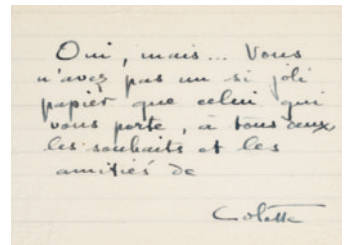 Oui, mais... Vous
n'avez pas un si joli
papier que celui qui
vous porte, à tous deux
les souhaits et les
amitiés de
Colette